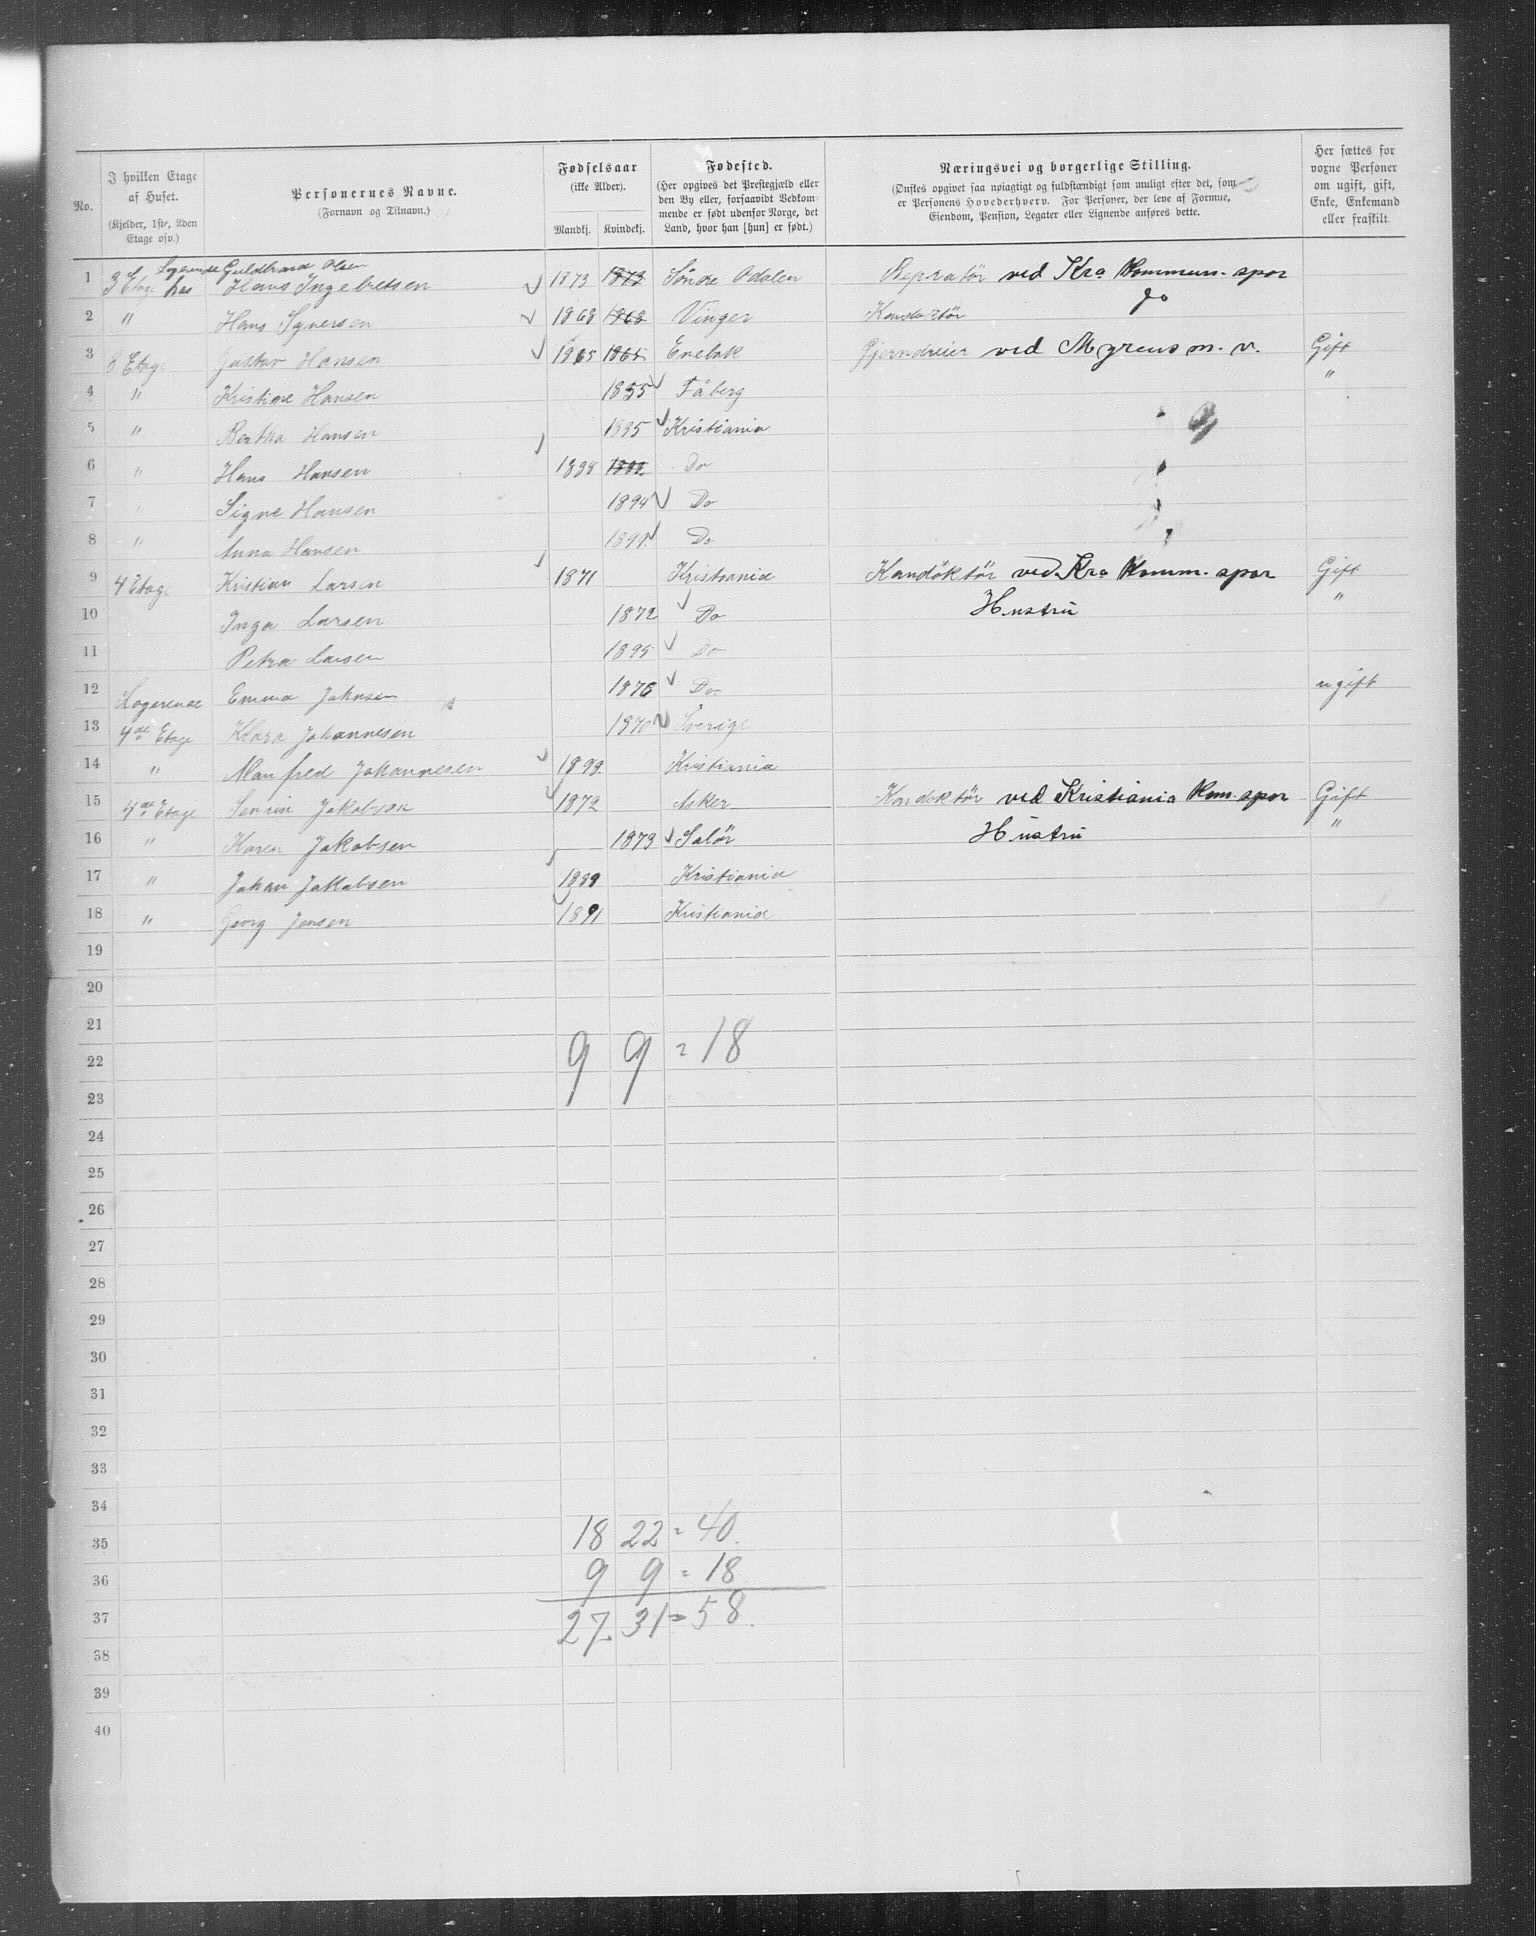 No.
I hvilken Etage af Huset.
(Kjelder, 1ste, 2den Etage osv.)
Personernes Navne.
(Fornavn og Tilnavn.)
Fødselsaar
(ikke Alder).
Mandkj. Kvindekj.
Fødested.
(Her opgives det Prestegjæld eller
den By eller, forsaavidt Vedkom-
mende er født udenfor Norge, det
Land, hvor han [hun] er født.)
Næringsvei og borgerlige Stilling.
(Ønskes opgivet saa nøiagtigt og fuldstændigt som muligt efter det, som
er Personens Hovederhverv. For Personer, der leve af Formue,
Eiendom, Pension, Legater eller Lignende anføres dette.
Her sættes for
voxne Personer
om ugift, gift,
Enke, Enkemand
eller fraskilt.
Logerende Guldbrand Olsen
1 3 Etage hos Hans Ingebretsen 1873 1873 Söndre Odalen Repratör ved Kra Kommun. spor
2 " Hans Syversen 1868 1868 Vinger Konduktör Do
3 3 Etage Gustav Hansen 1865 1865 Enebak Jjerndreier ved Myrens m. v. Gift
4 " Kristine Hansen 1855 Fåberg "
5 " Bertha Hansen 1885 Kristiania
6 " Hans Hansen 1898 1898 Do
7 " Signe Hansen 1894 Do
8 " Anna Hansen 1897 Do
9 4 Etage Kristian Larsen 1871 Kristiania Kondöktör ved Kra Komm. spor Gift
10 Inga Larsen 1872 Do Hustru "
11 Petra Larsen 1895 Do
12 Logerende Emma Johnsen 1876 Do ugift
13 4de Etage Klara Johannesen 1870 Sverige
14 " Manfred Johannesen 1899 Kristiania
15 4de Etage Severin Jakobsen 1872 Asker Konduktör ved Kristiania Kom. spor Gift
16 " Karen Jakobsen 1873 Solör Hustru "
17 " Johan Jakobsen 1899 Kristiania
18 " Georg Jensen 1891 Kristiania
19
20
21
22 9 9 = 18
23
24
25
26
27
28
29
30
31
32
33
34
35 18 22 = 40.
36 9 9 = 18
37 27. 31 = 58.
38
39
40